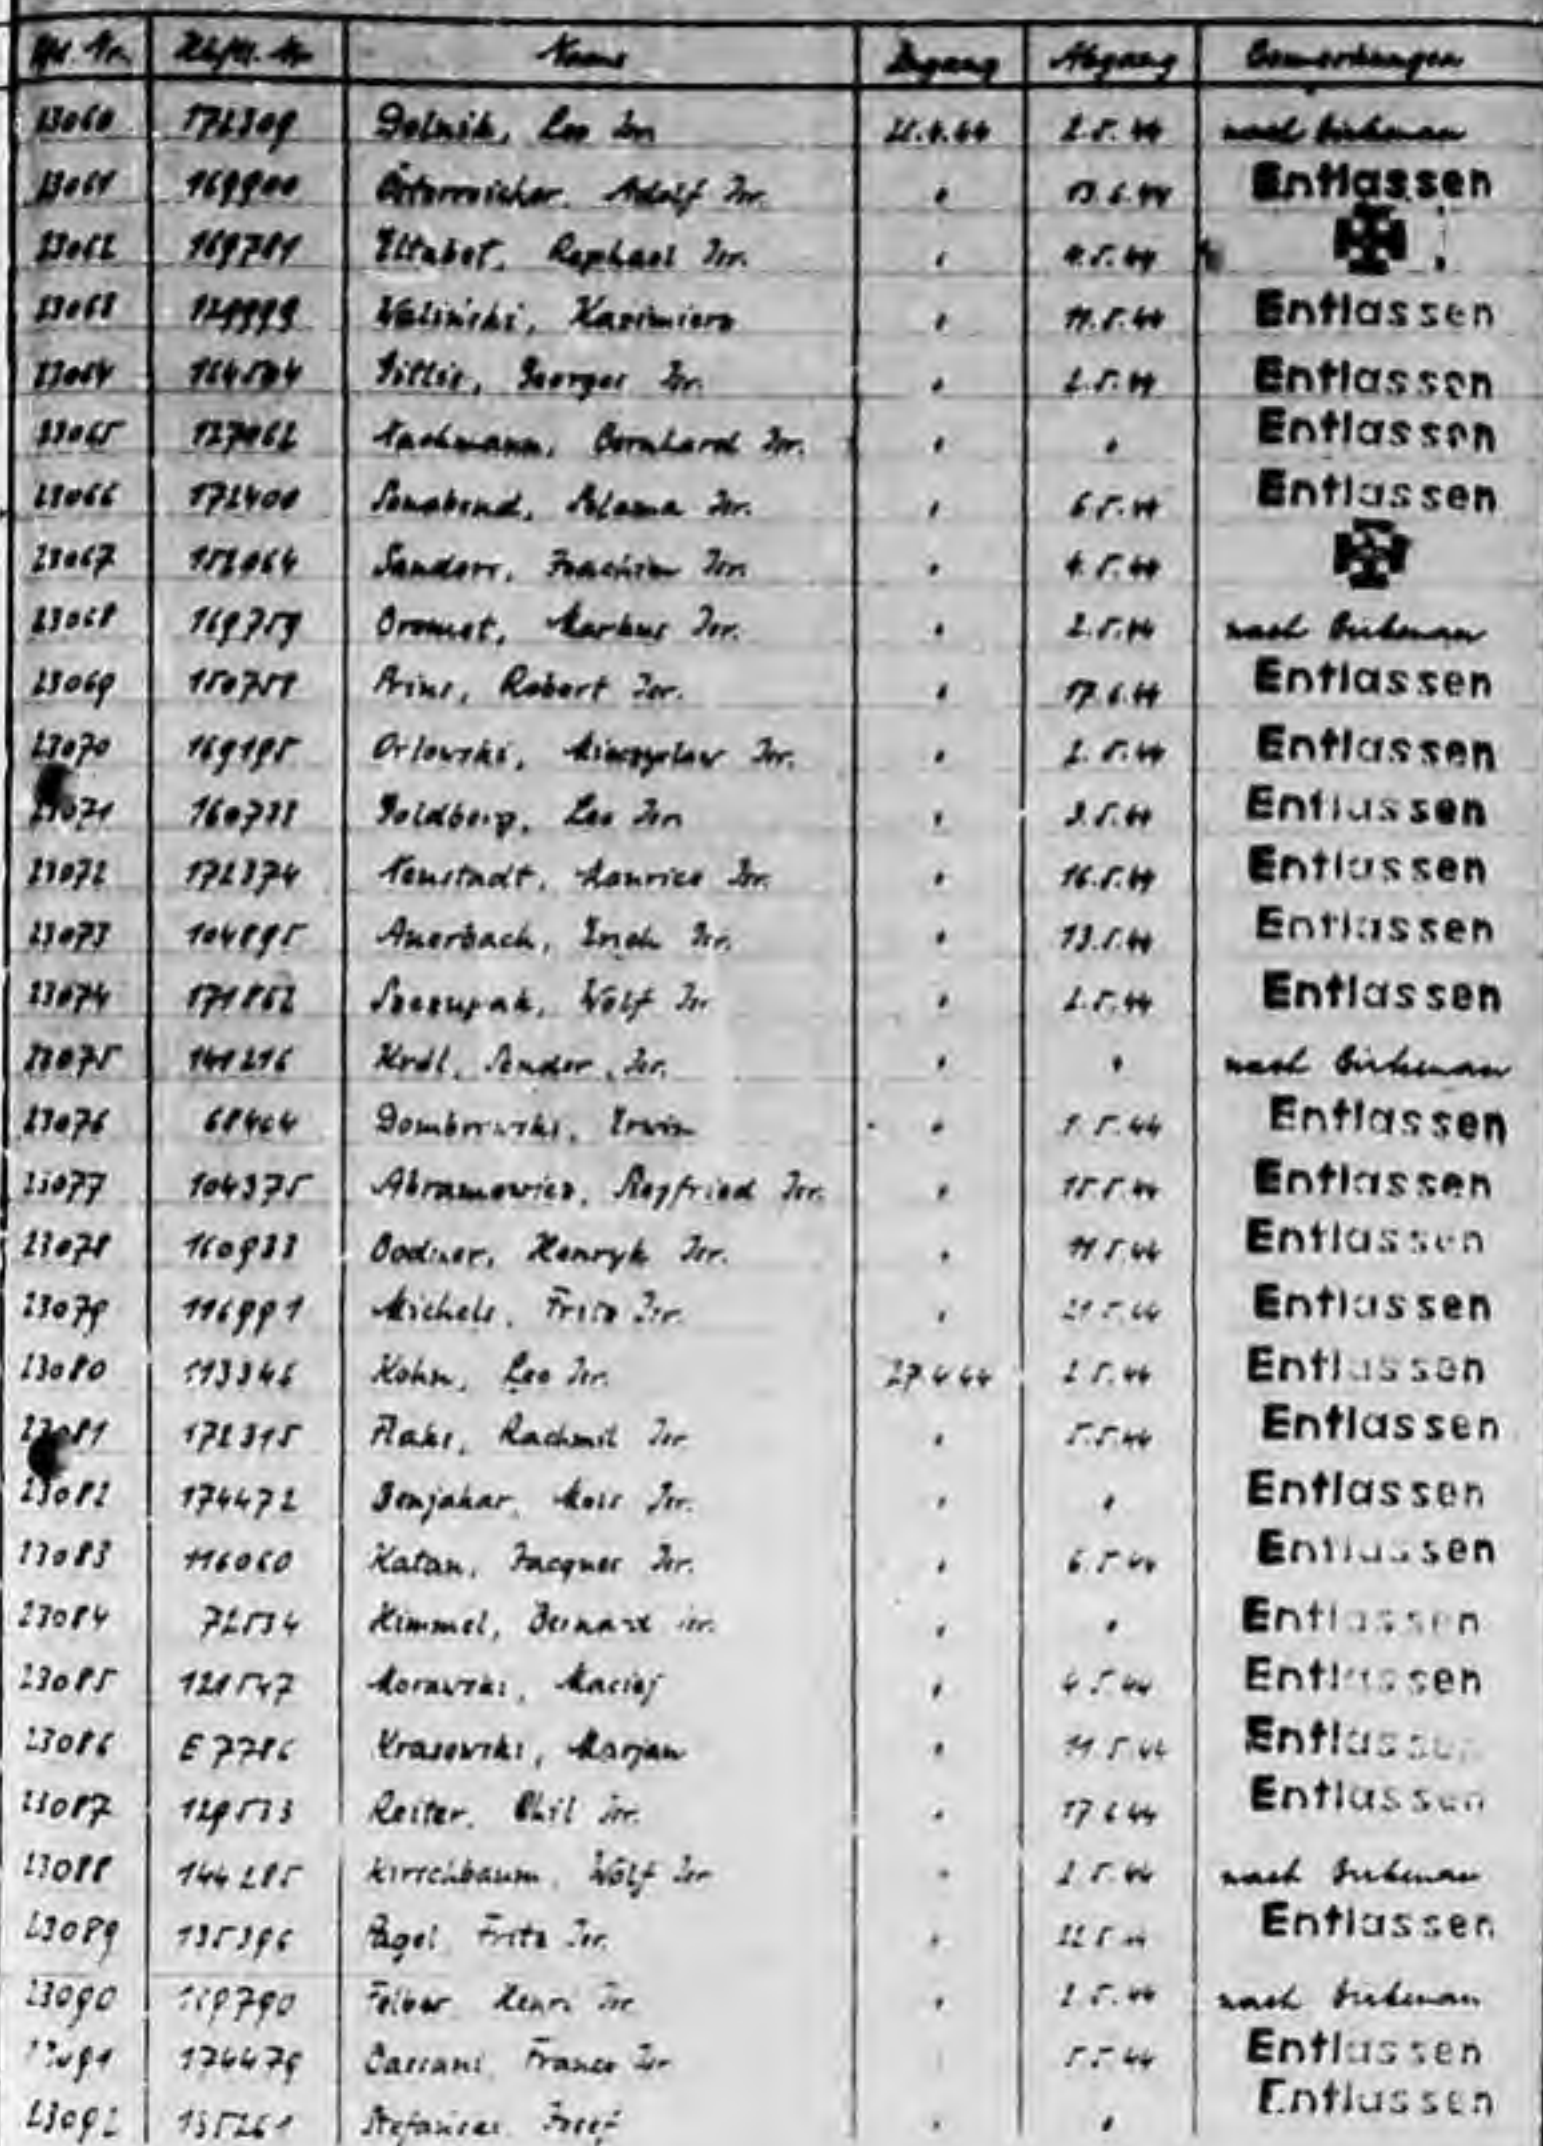 Lfd. Nr. Häftl. Nr. Name Zugang Abgang Bemerkungen
23060 172309 Dolnik, Leo Isr. 2.5.44 nach Birkenau
23061 169900 Österreicher, Adolf Isr. " 13.6.44 Entlassen
23062 169781 Raphael Isr. " 4.5.44
23063 129999 Walinski, Kazimierz " 11.5.44 Entlassen
23064 Georges Isr. " 2.5.44 Entlassen
23065 Nachmann, Bernhard Isr. " " Entlassen
23066 172400 Sonabend, Isr. " 6.5.44 Entlassen
23067 Sanders, Joachim Isr. " 4.5.44
23068 169759 Bromet, Markus Isr. " 2.5.44 nach Birkenau
23069 Prins, Robert Isr. " 17.6.44 Entlassen
23070 169195 Orlowski, Isr. " 2.5.44 Entlassen
23071 Goldberg, Leo Isr. " 3.5.44 Entlassen
23072 172374 Neustadt, Maurice Isr. " 16.5.44 Entlassen
23073 104895 Auerbach, Erich Isr. " 13.5.44 Entlassen
23074 171862 Szczupak, Wolf Isr. " 2.5.44 Entlassen
23075 141216 Sender, Isr. " " nach Birkenau
23076 68404 Dombrowski, Erwin " Entlassen
23077 104375 Abramowicz, Siegfried Isr. " 15.5.44 Entlassen
23078 160933 Henryk Isr. " 11.5.44 Entlassen
23079 116991 Michels, Fritz Isr. " 21.5.44 Entlassen
23080 113346 Kohn, Leo Isr. 27.4.44 2.5.44 Entlassen
23081 172315 Flaks, Rachmil Isr. " 5.5.44 Entlassen
23082 174472 Benjakar, Isr. " " Entlassen
23083 116060 Katan, Jacques Isr. " 6.5.44 Entlassen
23084 72534 Himmel, Bernard Isr. " " Entlassen
23085 121547 Morawski, Maciej " 4.5.44 Entlassen
23086 E 7786 Krasowski, Marjan " 11.5.44 Entlassen
23087 129533 Reiter, Chil Isr. " 17.6.44 Entlassen
23088 144285 Kirschbaum, Wolf Isr. " 2.5.44 nach Birkenau
23089 135396 Pagel, Fritz Isr. " 22.5.44 Entlassen
23090 169790 Henri Isr. " 2.5.44 nach Birkenau
23091 174479 Franco Isr. 5.5.44 Entlassen
23092 135261 Josef " " Entlassen